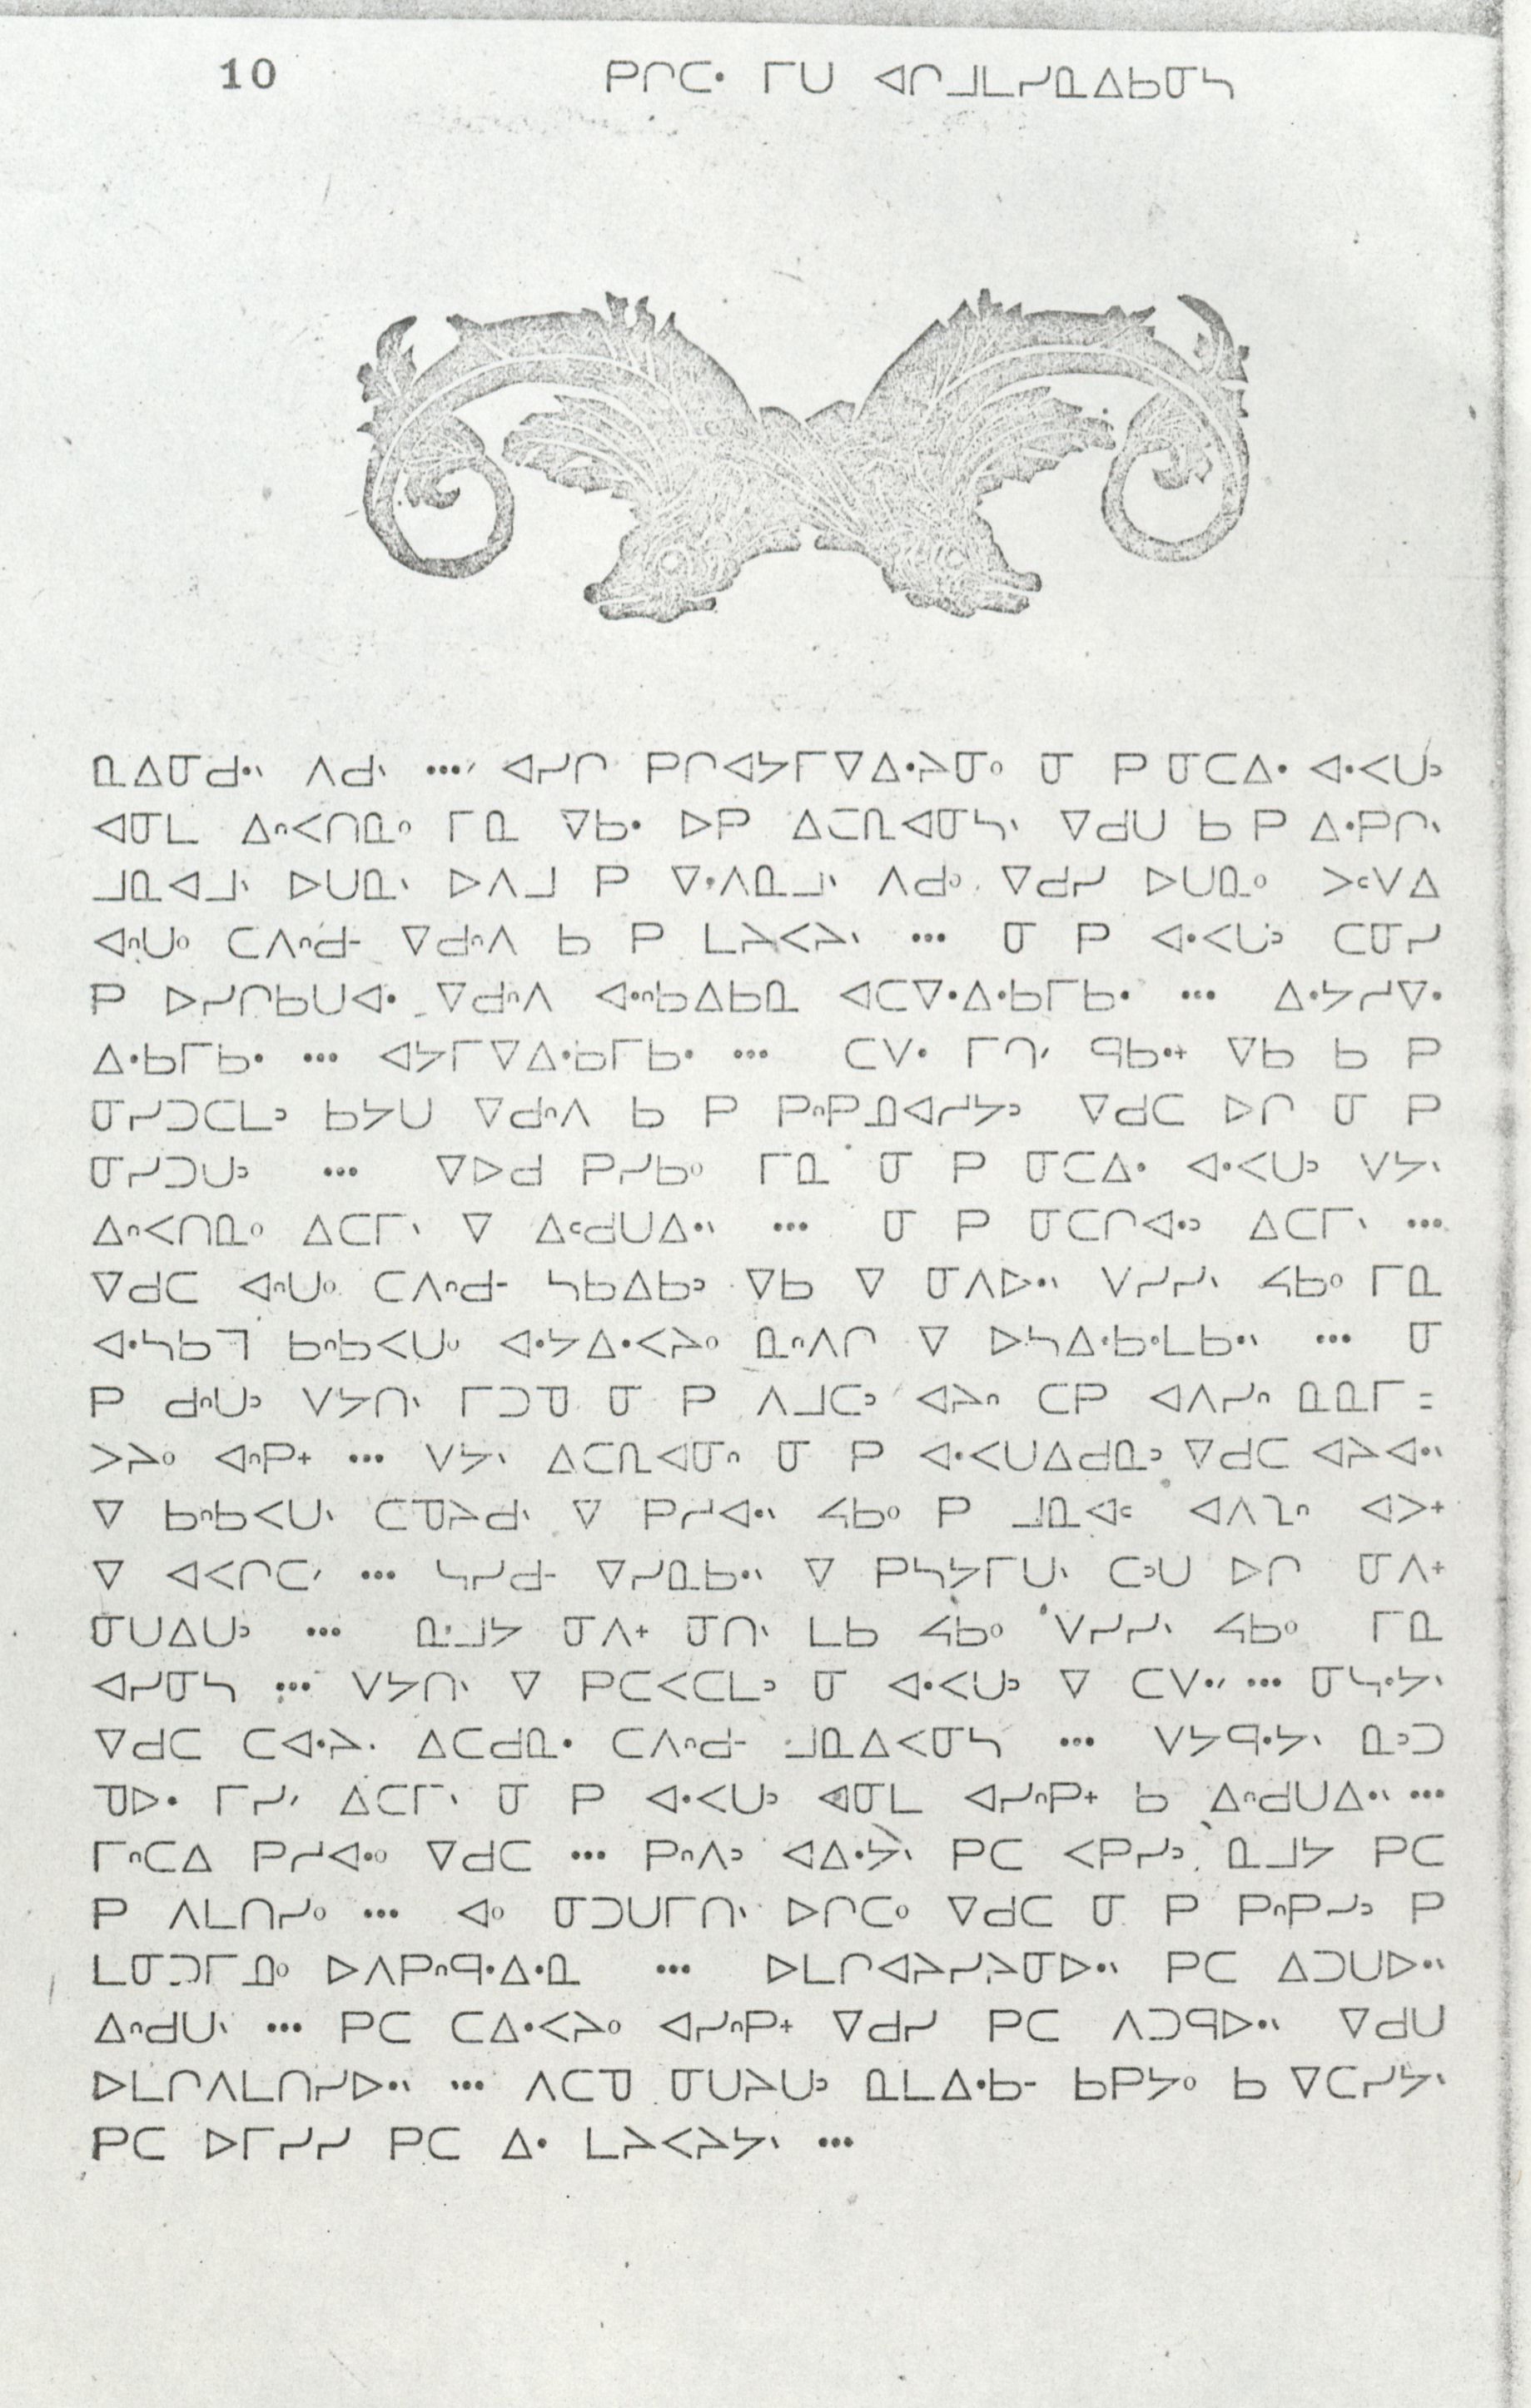 10 ᑭᒋᑕᐧ ᒥᑌ ᐊᒋᒧᒪᓯᓇᐃᑲᓂᓴ
ᓇᐃᓂᑯᐧᐠ ᐱᑯᐠ ... ᐊᓯᒋ ᑭᒋᐊᔭᒥᐁᐃᐧᔨᓂᐤ ᓂ ᑭ ᓂᑕᐃᐧ ᐊᐧᐸᑌᐣ
ᐊᓂᒪ ᐃᐢᐸᑎᓇᐤ ᒥᓇ ᐁᑲᐧ ᐅᑭ ᐃᑕᓇᐊᓂᓴᐠ ᐁᑯᑌ ᑲ ᑭ ᐃᐧᑭᒋᐠ
ᒧᓇᐊᒧᐠ ᐅᑌᓇᐠ ᐅᐱᒧ ᑭ ᐁᐧᐱᓇᒧᐠ ᐱᑯᐤ ᐁᑯᓯ ᐅᑌᓇᐤ
ᐊᐢᑌᐤ ᑕᐱᐢᑯᐨ ᐁᑯᐢᐱ ᑲ ᑭ ᒪᔨᐸᔨᐠ ... ᓂ ᑭ ᐊᐧᐸᑌᐣ ᑕᓂᓯ
ᑭ ᐅᓯᒋᑲᑌᐊᐧ ᐁᑯᐢᐱ ᐊᐧᐢᑲᐃᑲᓇ ᐊᑕᐁᐧᐃᐧᑲᒥᑲᐧ ... ᐃᐧᔭᓱᐁᐧ
ᐃᐧᑲᒥᑲᐧ ... ᐊᔭᒥᐁᐃᐧᑲᒥᑲᐧ ... ᑕᐯᐧ ᒥᑎᐟ ᑫᑲᐧᐩ ᐁᑲ ᑲ ᑭ
ᓂᓯᑐᑕᒪᐣ ᑲᔭᑌ ᐁᑯᐢᐱ ᑲ ᑭ ᑭᐢᑭᓄᐊᓱᔭᐣ ᐁᑯᑕ ᐅᒋ ᓂ ᑭ
ᓂᓯᑐᑌᐣ ... ᐁᐅᑯ ᑭᓯᑲᐤ ᒥᓇ ᓂ ᑭ ᓂᑕᐃᐧ ᐊᐧᐸᑌᐣ ᐯᔭᐠ
ᐃᐢᐸᑎᓇᐤ ᐃᑕᒥᐠ ᐁ ᐃᐢᑯᑌᐃᐧᐠ ... ᓂ ᑭ ᓂᑕᒋᐊᐧᐣ ᐃᑕᒥᐠ ...
ᐁᑯᑕ ᐊᐢᑌᐤ ᑕᐱᐢᑯᐨ ᓴᑲᐃᑲᐣ ᐁᑲ ᐁ ᓂᐱᐅᐧᐠ ᐯᓯᓯᐠ ᓵᑲᐤ ᒥᓇ
ᐊᐧᓴᑲᒣ ᑲᐢᑲᐸᑌᐤ ᐊᐧᔭᐃᐧᐸᔨᐤ ᓇᐢᐱᒋ ᐁ ᐅᓴᐃᐧᑲᐧᒪᑲᐧᐠ ... ᓂ
ᑭ ᑯᐢᑌᐣ ᐯᔭᑎᐠ ᒥᑐᓀ ᓂ ᑭ ᐱᒧᑕᐣ ᐊᔨᐢ ᑕᑭ ᐊᐱᓯᐢ ᓇᓇᒥ =
ᐳᔨᐤ ᐊᐢᑭᐩ ... ᐯᔭᐠ ᐃᑕᓇᐊᓂᐢ ᓂ ᑭ ᐊᐧᐸᑌᐃᑯᓇᐣ ᐁᑯᑕ ᐊᔨᐊᐧᐠ
ᐁ ᑲᐢᑲᐸᑌᐠ ᑕᓀᔨᑯᐠ ᐁ ᑭᓱᐊᐧᐠ ᓵᑲᐤ ᑭ ᒧᓇᐊᑊ ᐊᐱᓰᐢ ᐊᐳᐩ
ᐁ ᐊᐸᒋᑕᐟ ... ᓴᓯᑯᐨ ᐁᓯᓇᑲᐧᐠ ᐁ ᑭᓴᔭᒥᑌᐠ ᑕᐣᑌ ᐅᒋ ᓂᐱᐩ
ᓂᑌᐃᑌᐣ ... ᓇᒧᔭ ᓂᐱᐩ ᓂᑎᐠ ᒪᑲ ᓵᑲᐤ ᐯᓯᓯᐠ ᓵᑲᐤ ᒥᓇ
ᐊᓯᓂᓴ ... ᐯᔭᑎᐠ ᐁ ᑭᑕᐸᑕᒪᐣ ᓂ ᐊᐧᐸᑌᐣ ᐁ ᑕᐯᐧᐟ ... ᓂᓴᐧᔭᐠ
ᐁᑯᑕ ᑕᐊᐧᔨᐠ ᐃᑕᑯᓇᐧ ᑕᐱᐢᑯᐨ ᒧᓇᐃᐸᓂᓴ ... ᐯᔭᑫᐧᔭᐠ ᓇᐣᑐ
ᓀᐅᐧ ᒥᓯᐟ ᐃᑕᒥᐠ ᓂ ᑭ ᐊᐧᐸᑌᐣ ᐊᓂᒪ ᐊᓯᐢᑭᐩ ᑲ ᐃᐢᑯᑌᐃᐧᐠ ...
ᒥᐢᑕᐃ ᑭᓱᐊᐧᐤ ᐁᑯᑕ ... ᑭᐢᐱᐣ ᐊᐃᐧᔭᐠ ᑭᑕ ᐸᑭᓯᐣ ᓇᒧᔭ ᑭᑕ
ᑭ ᐱᒪᑎᓯᐤ ... ᐊᐤ ᓂᑐᑌᒥᑎᐠ ᐅᒋᑕᐤ ᐁᑯᑕ ᓂ ᑭ ᑭᐢᑭᓯᐣ ᑭ
ᒪᓂᑐᒥᓄᐤ ᐅᐱᑭᐢᑫᐧᐃᐧᓇ ... ᐅᒪᒋᐊᔨᓯᔨᓂᐅᐧᐠ ᑭᑕ ᐃᑐᑌᐅᐧᐠ
ᐃᐢᑯᑌᐠ ... ᑭᑕ ᑕᐃᐧᐸᔨᐤ ᐊᓯᐢᑭᐩ ᐁᑯᓯ ᑭᑕ ᐱᑐᑫᐅᐧᐠ ᐁᑯᑌ
ᐅᒪᒋᐱᒪᑎᓱᐅᐧᐠ ... ᐱᑕᓀ ᓂᑌᔨᑌᐣ ᓇᒪᐃᐧᑲᐨ ᑲᑭᔭᐤ ᑲ ᐁᑕᓯᔭᐠ
ᑭᑕ ᐅᒥᓯᓯ ᑭᑕ ᐃᐧ ᒪᔨᐸᔨᔭᐠ ...